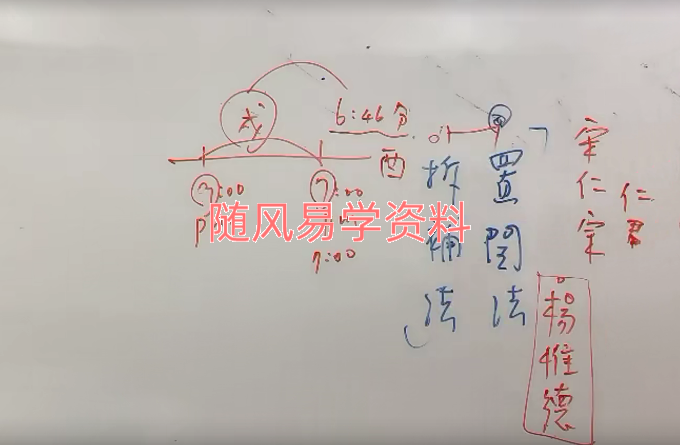 戌
6:46分
酉
7:00
7:00
7:00
随风易学资料
拆補法
置閏法
宋仁宗
仁君
楊惟德